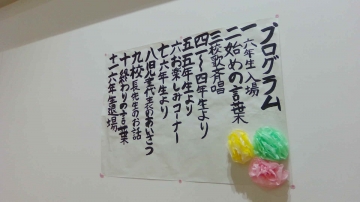 プログラム
一 六年生入場
二 始めの言葉
三 校歌斉唱
四 一～四年生より
五 五年生より
六 お楽しみコーナー
七 六年生より
八 旧児童代表のあいさつ
九 校長先生のお話
十 終わりの言葉
十一 六年生退場